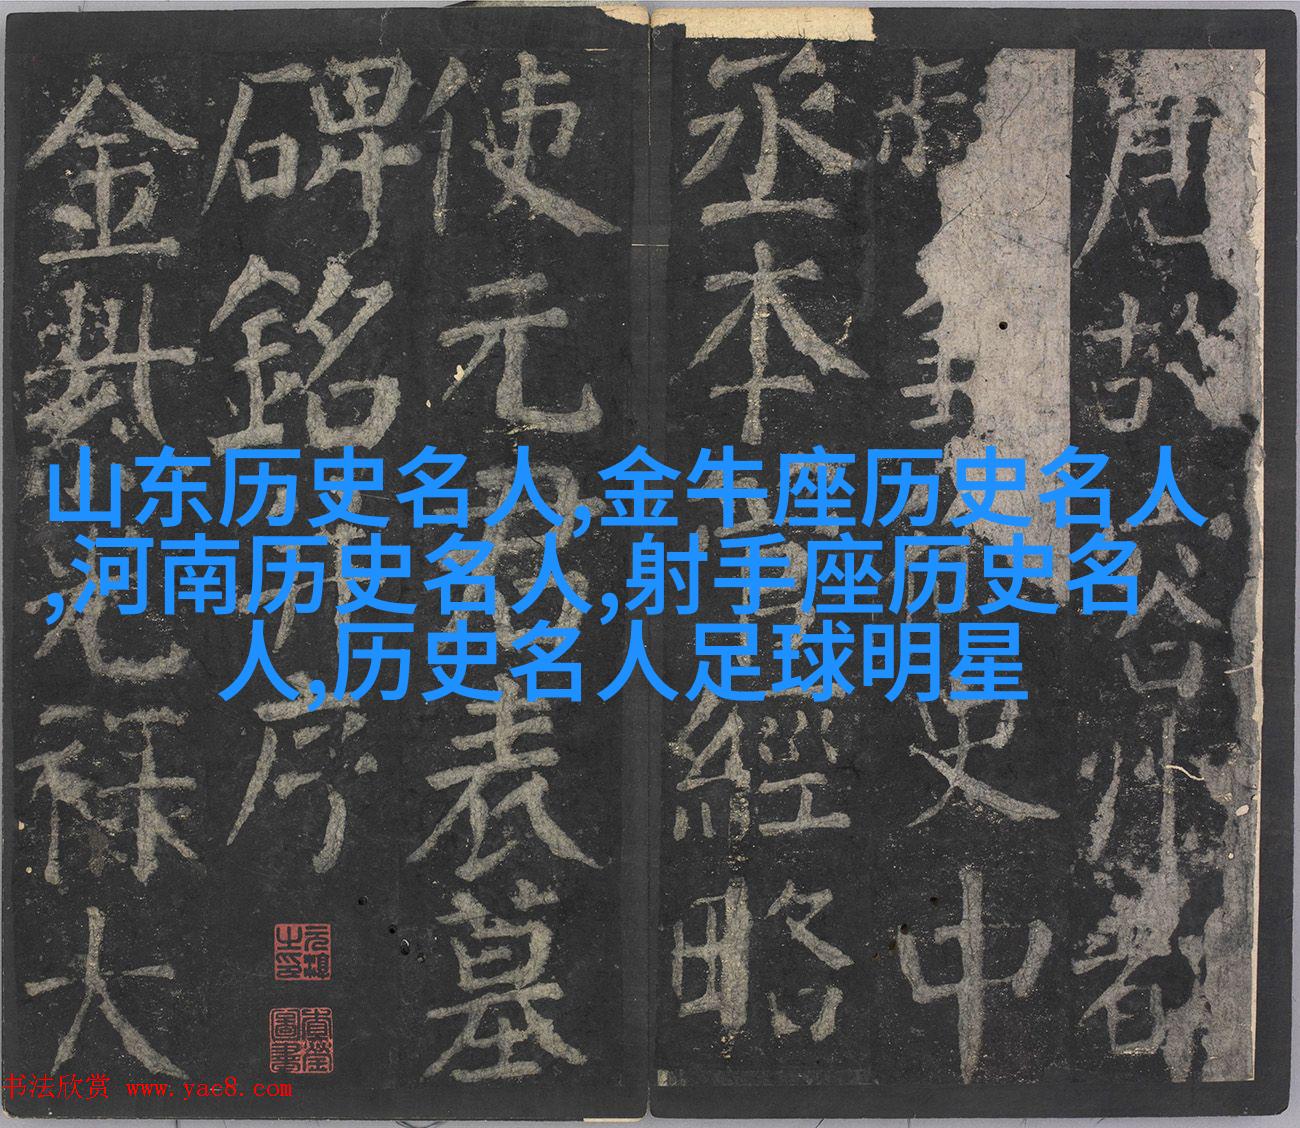 山东历史名人,金牛座历史名人
,河南历史名人,射手座历史名
人,历史名人足球明星
唐故容州都
史中
丞本管經略
使元君表墓
碑銘并序
金紫光祿大
书法欣赏 www.yac8.com